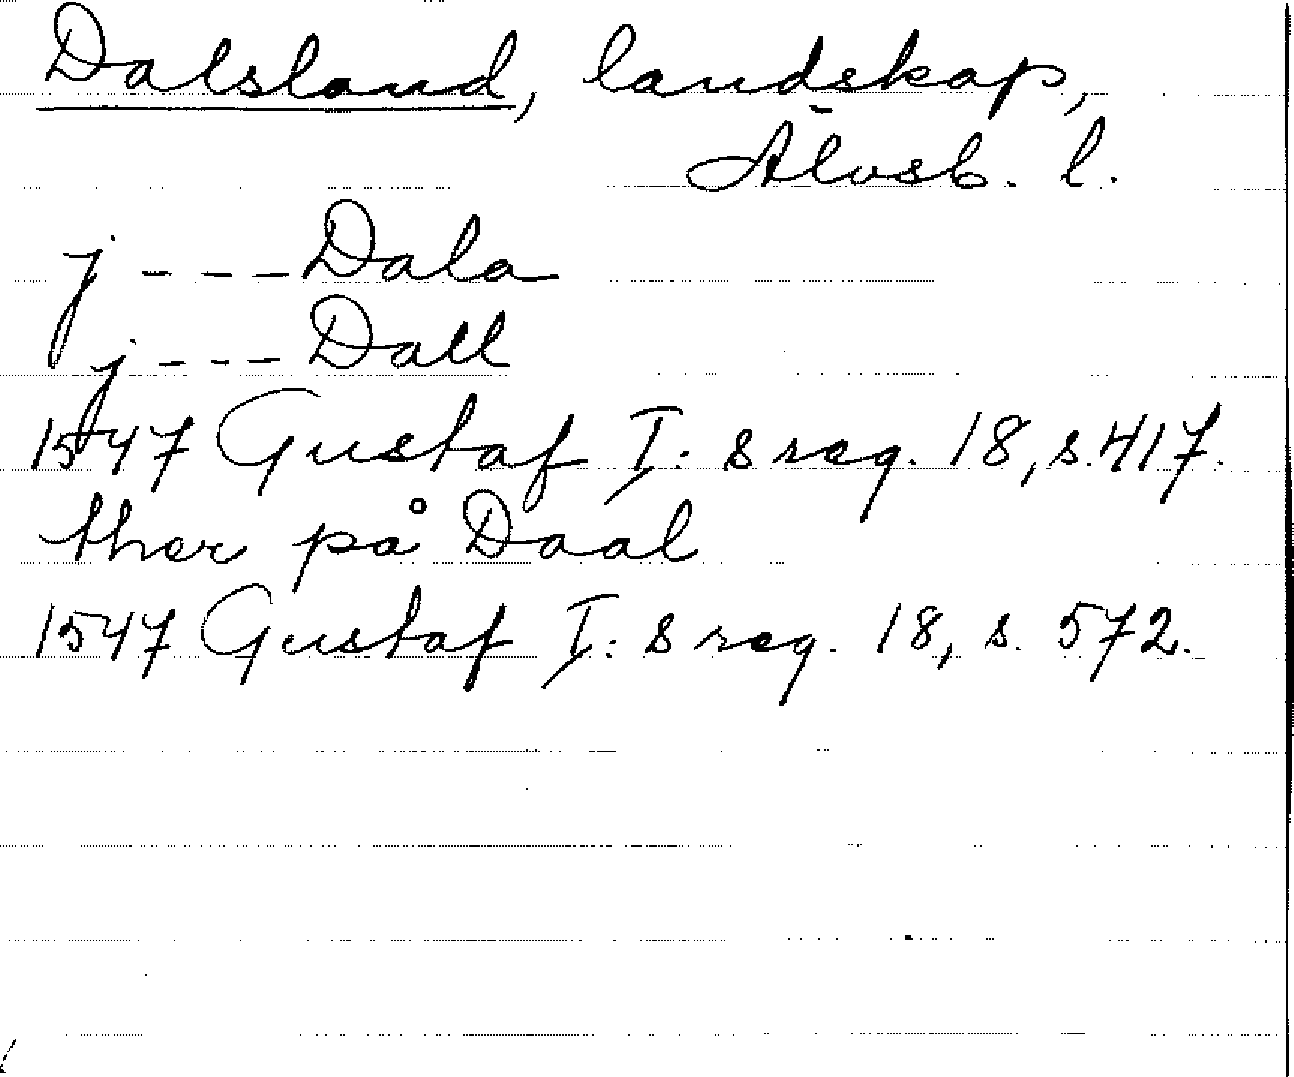 Dalsland, landskap,
Älvsb. l.
j - - - Dala
j - - - Dall
1547 Gustaf I:s reg. 18, s. 417.
ther på Daal
1547 Gustaf I:s reg. 18, s. 572.